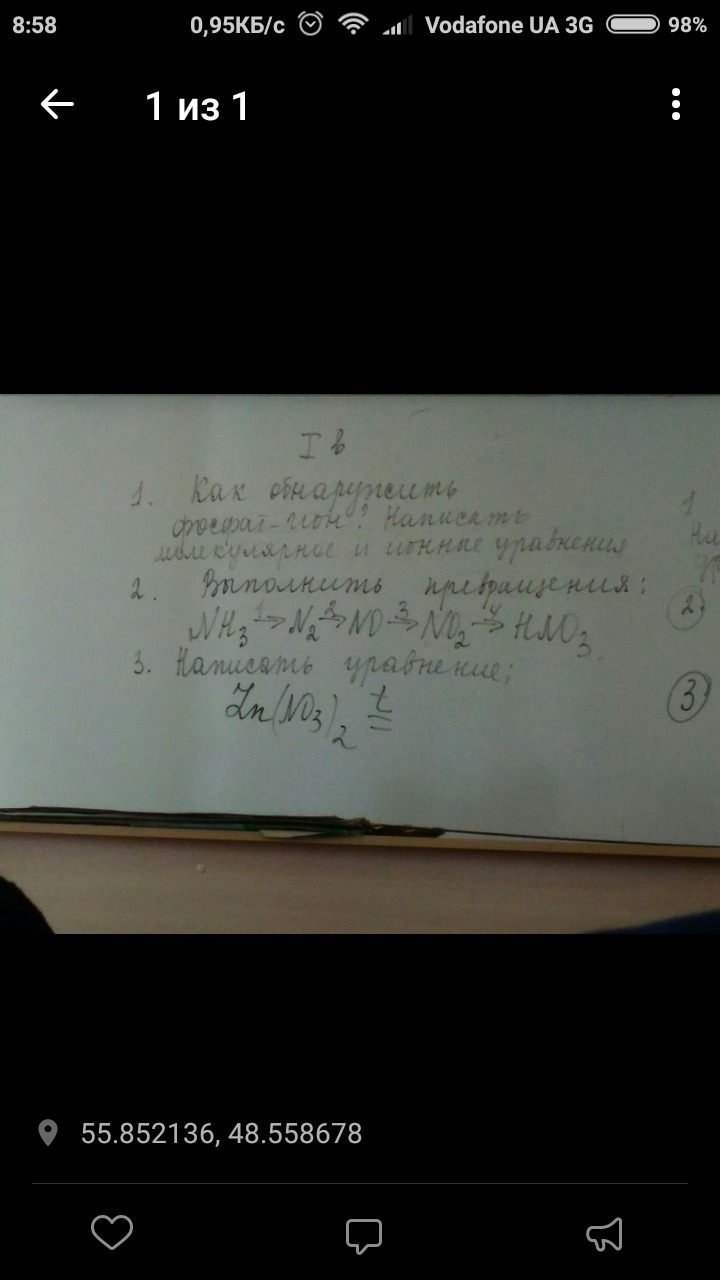 8:58 0,95КБ/с Vodafone UA 3G 98%
1 из 1
I в
1. Как обнаружить
фосфат-ион? Написать
молекулярное и ионные уравнения
2. Выполнить превращения:
NH3 1→ N2 2→ NO 3→ NO2 4→ HNO3.
3. Написать уравнение:
Zn(NO3)2 t=
1
На
ур
2
3
55.852136, 48.558678